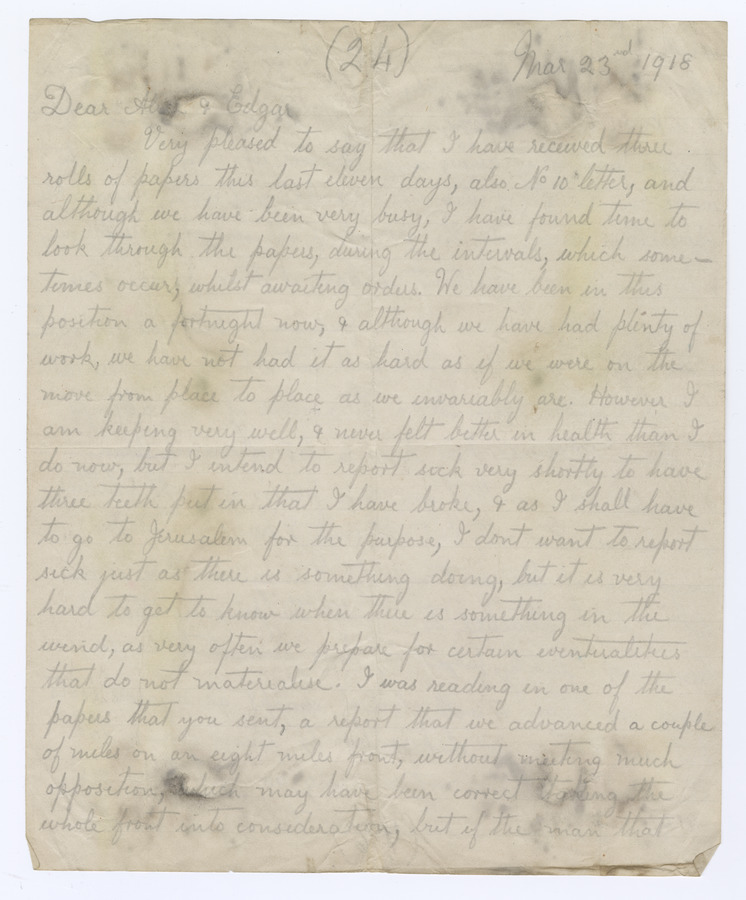 (24) Mar 23rd 1918
Dear & Edgar
Very pleased to say that I have received three
rolls of papers this last eleven days, also No 10 letter, and
although we have been very busy, I have found time to
look through the papers, during the intervals, which some-
times occur, whilst awaiting orders. We have been in this
position a fortnight now, & although we have had plenty of
work, we have not had it as hard as if we were on the
move from place to place as we invariably are. However I
am keeping very well, & never felt better in health than I
do now, but I intend to report sick very shortly to have
three teeth put in that I have broke, & as I shall have
to go to Jerusalem for the purpose, I dont want to report
sick just as there is something doing, but it is very
hard to get to know when there is something in the
wind, as very often we prepare for certain eventualities
that do not materialise. I was reading in one of the
papers that you sent, a report that we advanced a couple
of miles on an eight miles front, without meeting much
opposition, which may have been correct taking the
whole front into consideration, but if the man that